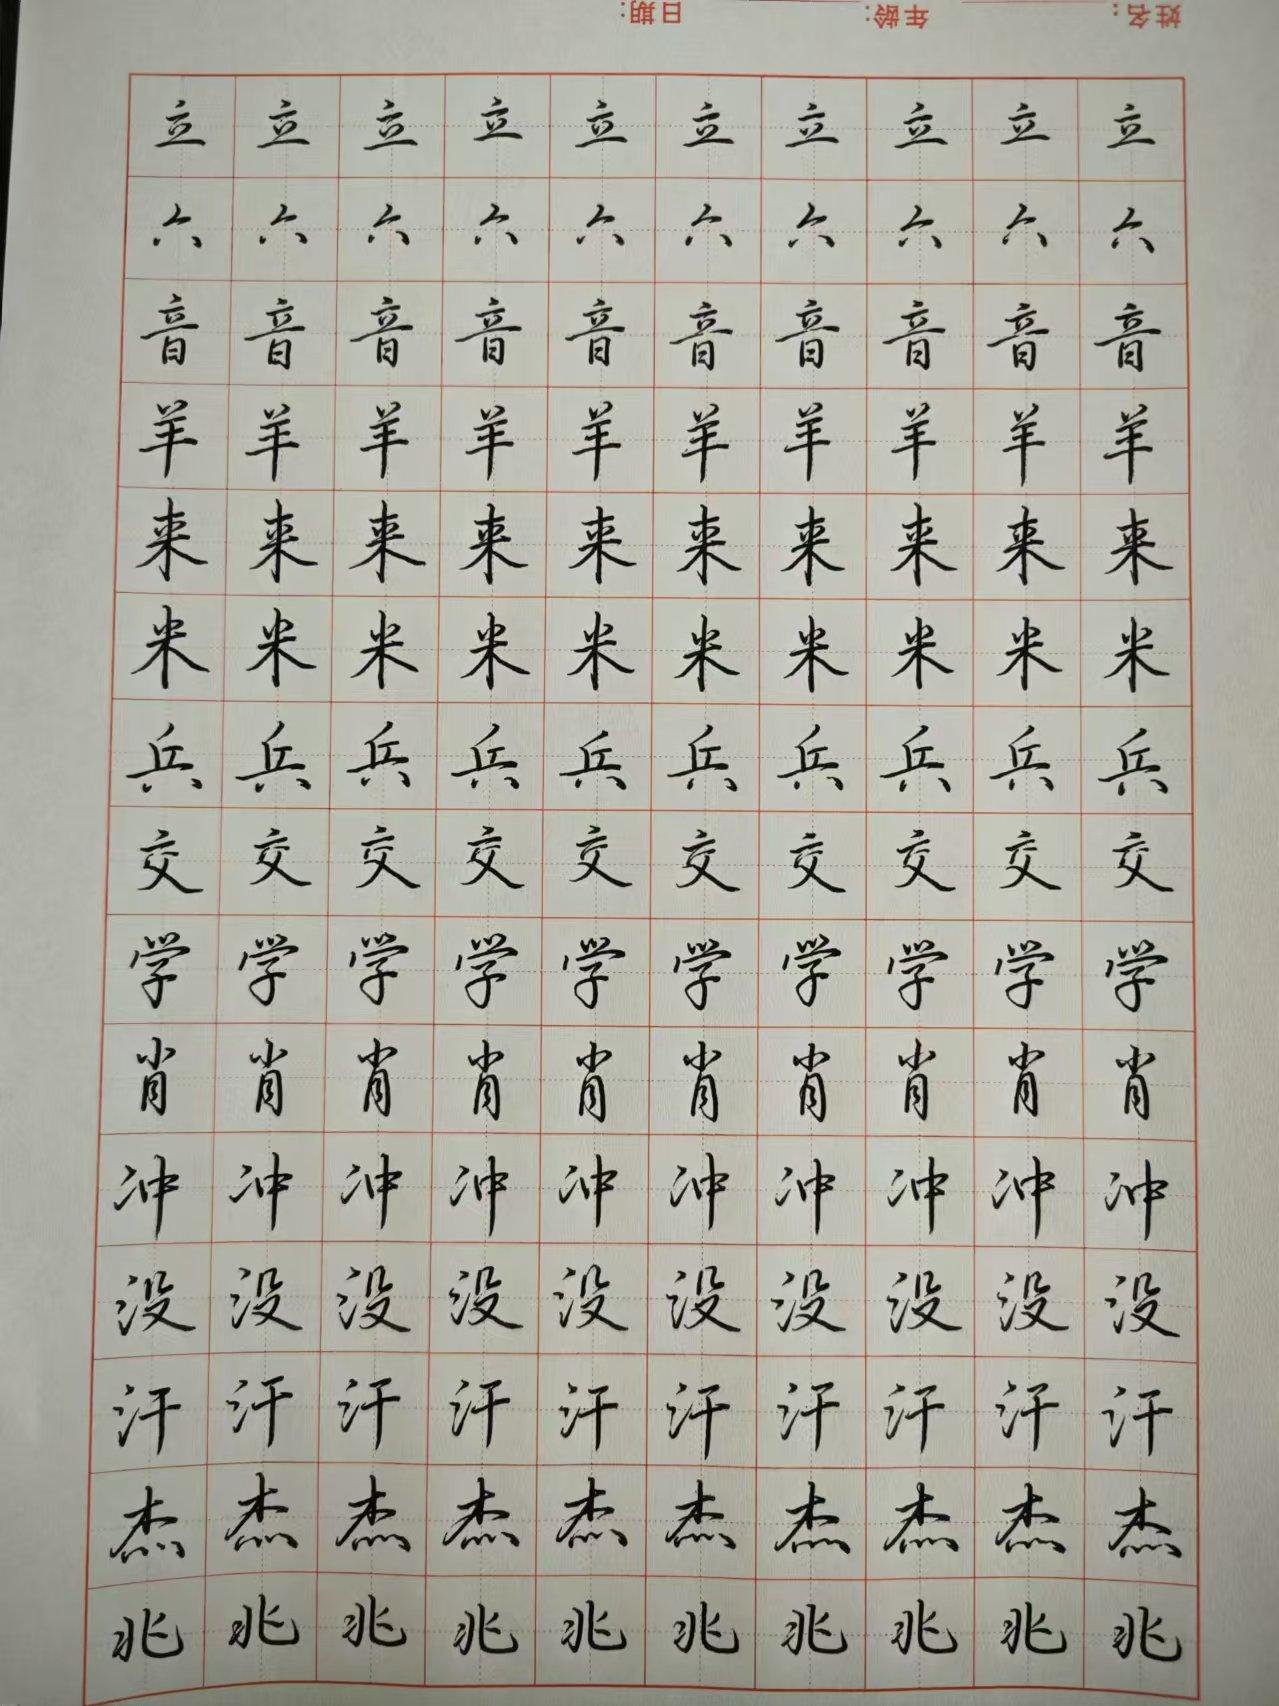 姓名: 年龄: 日期:
立立立立立立立立立立
六六六六六六六六六六
音音音音音音音音音音
羊羊羊羊羊羊羊羊羊羊
来来来来来来来来来来
米米米米米米米米米米
兵兵兵兵兵兵兵兵兵兵
交交交交交交交交交交
学学学学学学学学学学
肖肖肖肖肖肖肖肖肖肖
冲冲冲冲冲冲冲冲冲冲
没没没没没没没没没没
汗汗汗汗汗汗汗汗汗汗
杰杰杰杰杰杰杰杰杰杰
兆兆兆兆兆兆兆兆兆兆